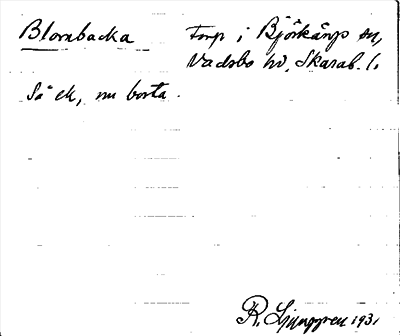 Blombacka
Torp i Björkängs sn,
Vadsbo hd, Skarab. l.
Så ek, nu borta.
R. Ljunggren 1931